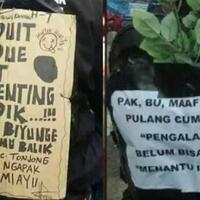 UIT
QUE
T
ENTING
DIK...!!!
BIYUNGE
MU BALIK
TONJONG
NGAPAK
MIAYU
PAK, BU, MAAF
PULANG CUM
"PENGALA
BELUM BISA
"MENANTU I